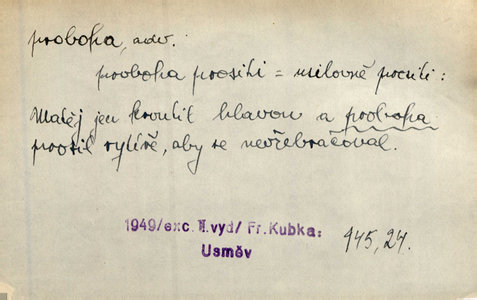 proboha, adv.
proboha prositi = usilovně prositi:
Matěj jen kroutil hlavou a proboha
prosil rytíře, aby se nevřebračoval.
1949/exc. II.vyd/ Fr.Kubka:
Usměv
145,24.